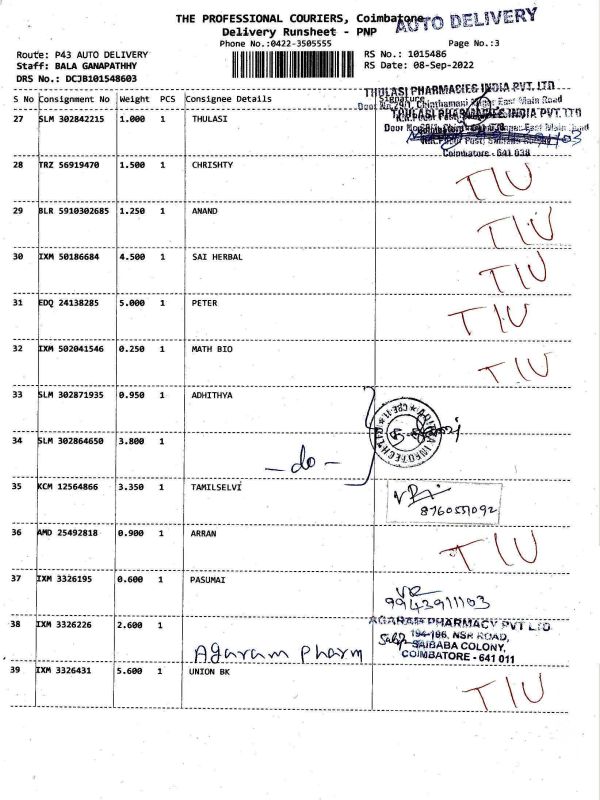 THE PROFESSIONAL COURIERS, Coimbatone
AUTO DELIVERY
Delivery Runsheet - PNP
Phone No.:0422-3505555
Page No.:3
Route: P43 AUTO DELIVERY
RS No.: 1015486
Staff: BALA GANAPATHHY
RS Date: 08-Sep-2022
DRS No.: DCJB101548603
S No Consignment No Weight PCS Consignee Details Signature
THULASI PHARMACIES INDIA PVT. LTD
THULASI PHARMACIES INDIA PVT. LTD
27 SLM 302842215 1.000 1 THULASI
Coimbatore - 641 038
28 TRZ 56919470 1.500 1 CHRISHTY TIU
29 BLR 5910302685 1.250 1 ANAND TIU
30 IXM 50186684 4.500 1 SAI HERBAL TIU
31 EDQ 24138285 5.000 1 PETER TIU
32 IXM 502041546 0.250 1 MATH BIO TIU
33 SLM 302871935 0.950 1 ADHITHYA
34 SLM 302864650 3.800 1 - do -
35 KCM 12564866 3.350 1 TAMILSELVI
8760551092
36 AMD 25492818 0.900 1 ARRAN TIU
37 IXM 3326195 0.600 1 PASUMAI
9943911103
38 IXM 3326226 2.600 1 Agaram Pharm
AGARAM PHARMACY PVT LTD.
194-196, NSR ROAD,
SAIBABA COLONY,
COIMBATORE - 641 011
39 IXM 3326431 5.600 1 UNION BK TIU